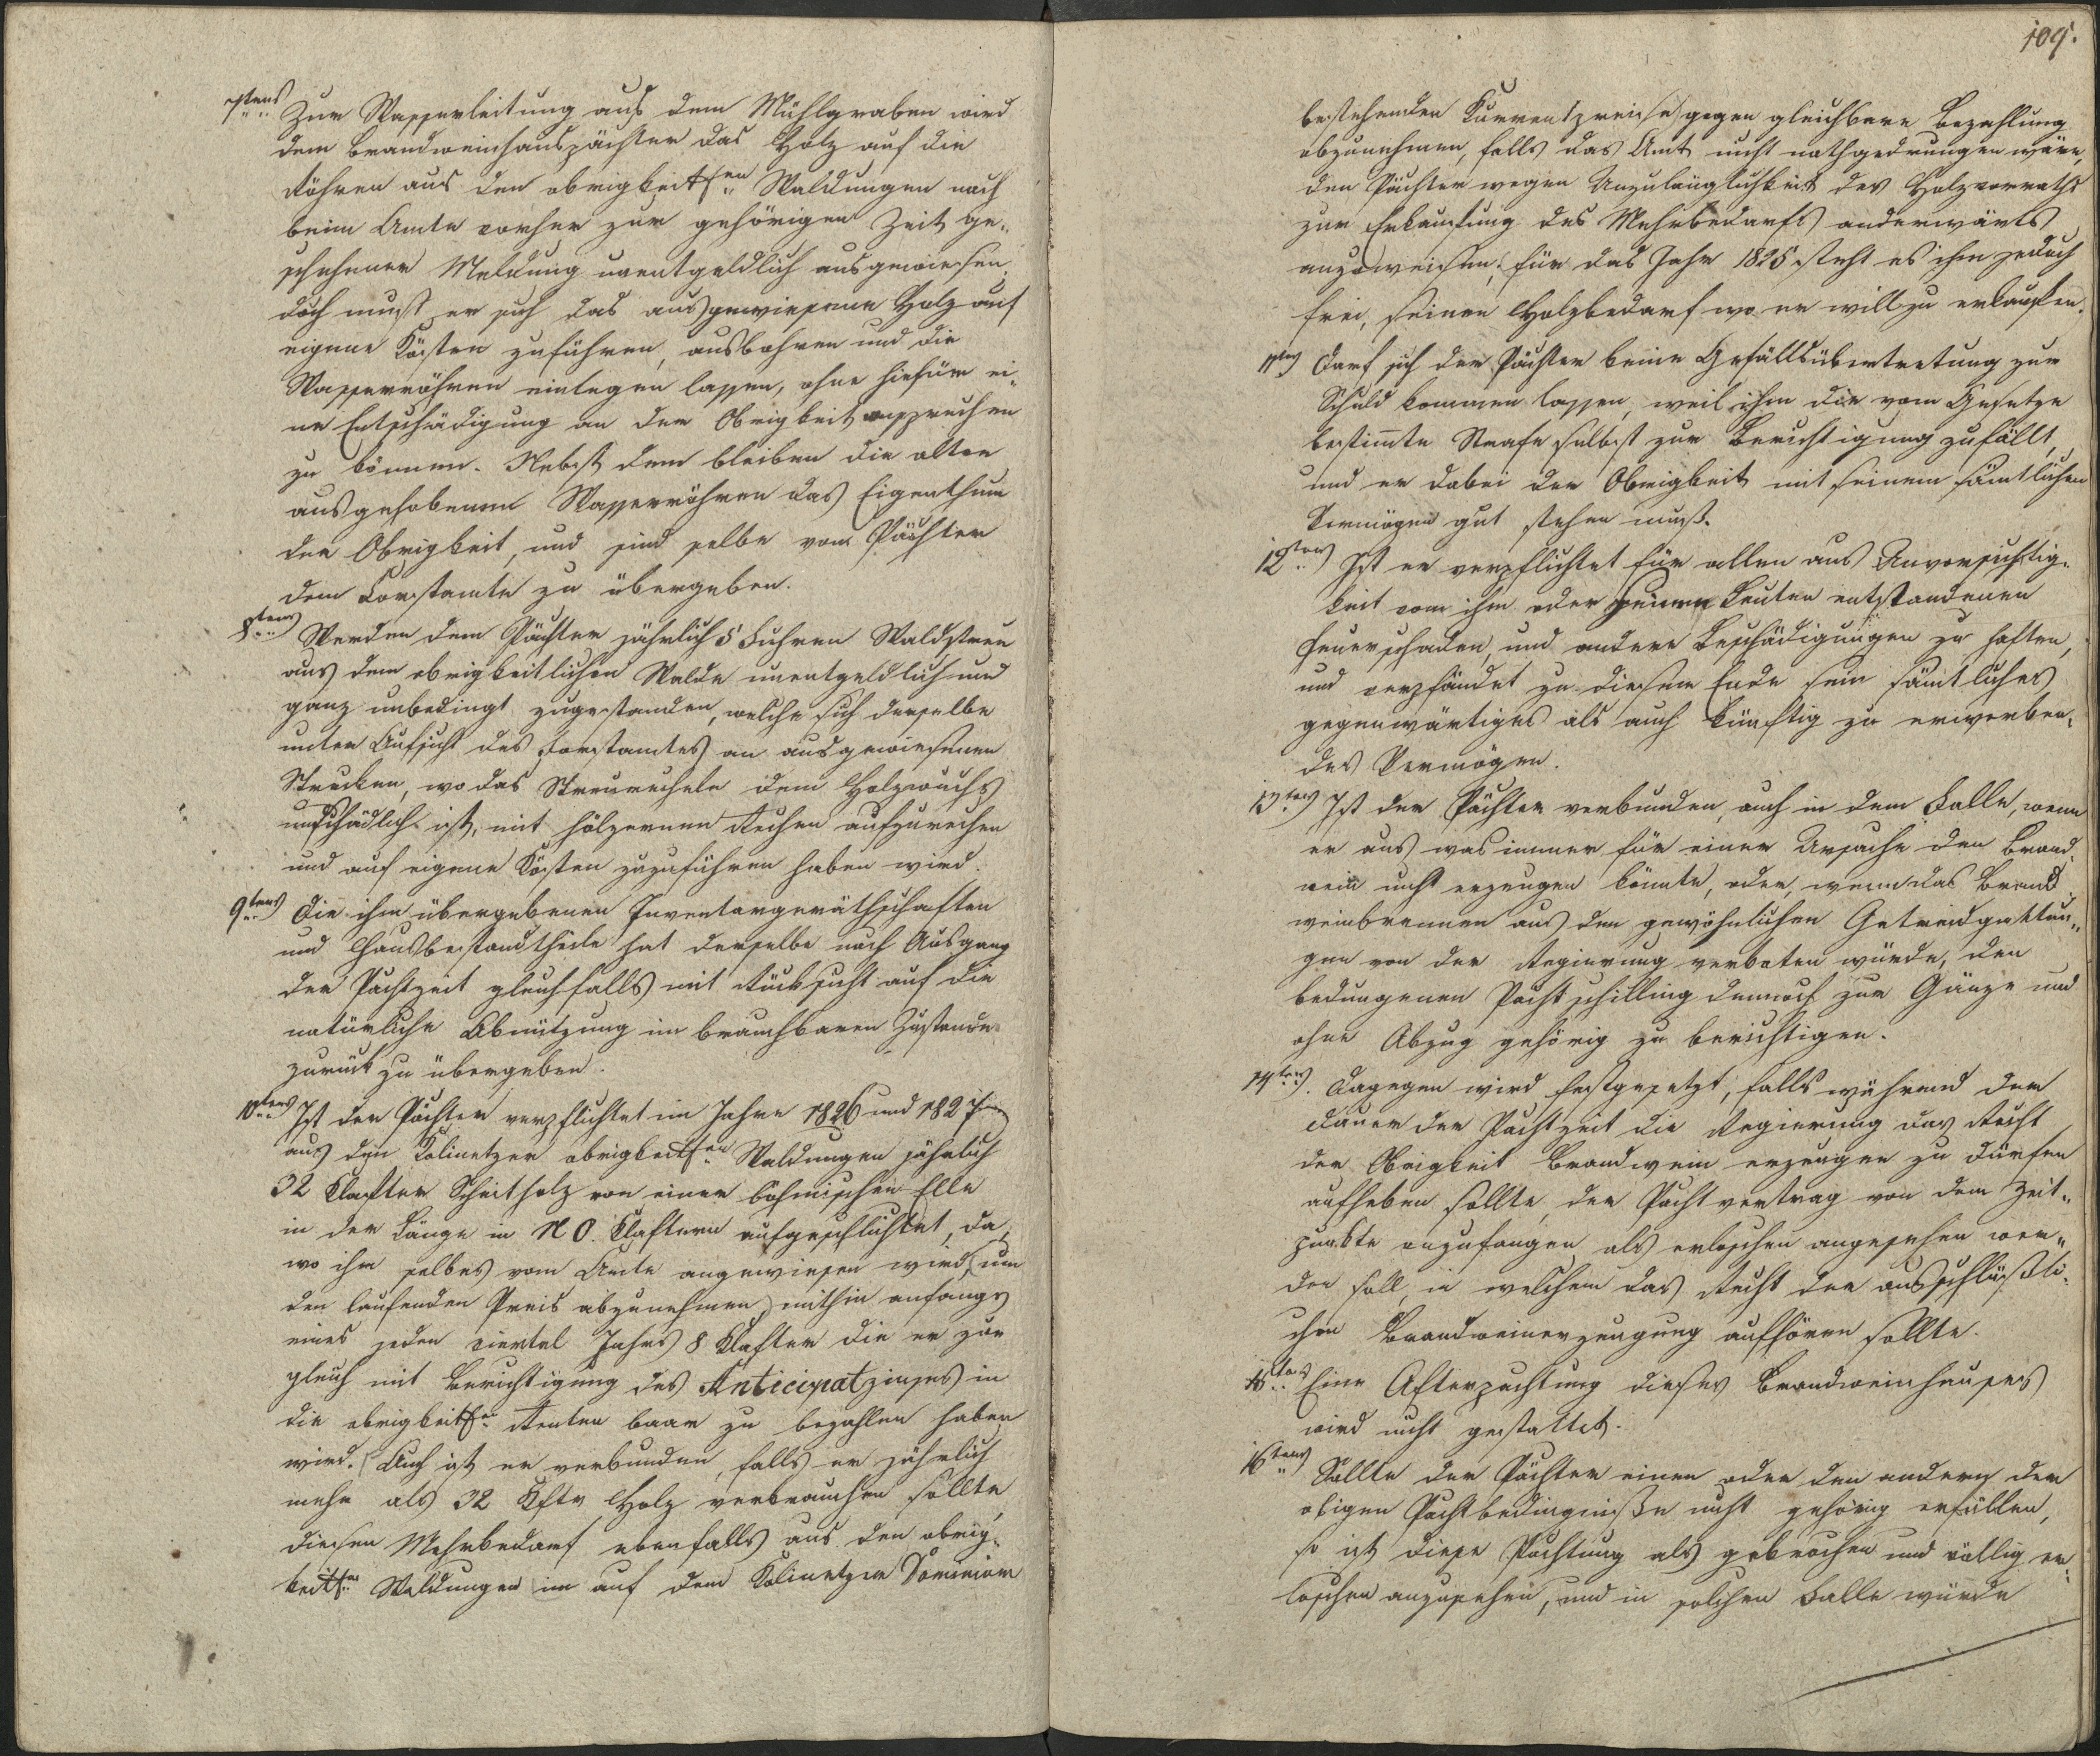 7tens Zur Wasserleitung aus dem Mühlgraben wird
dem Brandweinhauspächter das Holz auf die
Röhren aus den obrigkeitlen Waldungen nach
beim Amte vorher zur gehörigen Zeit ge-
schehener Meldung unentgeldlich ausgewiesen,
doch muß er sich das ausgewiesene Holz auf
eigene Kösten zuführen, ausbohren und die
Wasserröhren einlegen lassen, ohne hiefür ei-
ne Entschädigung an der Obrigkeit ansprechen
zu können. Nebst dem bleiben die alten
ausgehobenen Wasserröhren das Eigenthum
der Obrigkeit, und sind selbe vom Pächter
dem Forstamte zu übergeben.
8tens Werden dem Pächter jährlich 5 Fuhren Waldstreu
aus dem obrigkeitlichen Walde unentgeldlich und
ganz unbedingt zugestanden, welche sich derselbe
unter Aufsicht des Forstamtes an ausgewiesenen
Strecken, wo das Streurecheln dem Holzwuchs
unschädlich ist, mit hölzernen Rechen aufzurechen
und auf eigene Kösten zuzuführen haben wird.
9tens Die ihm übergebenen Inventargeräthschaften
und Hausbestandtheile hat derselbe nach Ausgang
der Pachtzeit gleichfalls mit Rücksicht auf die
natürliche Abnützung im brauchbaren Zustande
zurück zu übergeben.
10tens Ist der Pächter verpflichtet im Jahre 1826 und 1827
aus den Kolinetzer obrigkeitlen Waldungen jährlich
32 Klafter Scheitholz von einer böhmischen Elle
in der Länge in N O. Klaftern aufgeschlichtet, da,
wo ihm selbes vom Amte angewiesen wird, um
den laufenden Preis abzunehmen, mithin anfangs
eines jeden viertel Jahrs 8 Klafter die er zu-
gleich mit Berichtigung des Anticipatzinses in
die obrigkeitlen Renten baar zu bezahlen haben
wird. Auch ist er verbunden, falls er jährlich
mehr als 32 Klftr Holz verbrauchen sollte,
diesen Mehrbedarf ebenfalls aus den obrig-
keitlen Waldungen im auf dem Kolinetzer Dominium
109.
bestehenden Kurrentpreise gegen gleichbare Bezahlung
abzunehmen, falls das Amt nicht nothgedrungen wäre,
den Pächter wegen Unzulänglichkeit des Holzvorraths
zur Erkaufung des Mehrbedarfs anderwärts
anzuweisen; für das Jahr 1825 steht es ihm jedoch
frei, seinen Holzbedarf wo er will zu erkaufen.
11tens Darf sich der Pächter keine Gefällsübertretung zur
Schuld kommen lassen, weil ihm die vom Gesetze
bestimte Strafe selbst zur Berichtigung zufällt,
und er dabei der Obrigkeit mit seinem sämtlichen
Vermögen gut stehen muß.
12tens Ist er verpflichtet für allen aus Unvorsichtig-
keit vom ihm oder seinen Leuten entstandenen
Feuerschaden, und andere Beschädigungen zu haften,
und verpfändet zu diesem Ende sein sämtliches
gegenwärtiges als auch künftig zu erwerben-
des Vermögen.
13tens Ist der Pächter verbunden, auch in dem Falle, wenn
er aus was immer für einer Ursache den Brand-
wein nicht erzeugen könnte, oder, wenn das Brand-
weinbrennen aus den gewöhnlichen Getreidgattun-
gen von der Regierung verboten würde, den
bedungenen Pachtschilling dennoch zur Gänze und
ohne Abzug gehörig zu berichtigen.
14tens. Dagegen wird festgesetzt, falls während der
Dauer der Pachtzeit die Regierung das Recht
der Obrigkeit Brandwein erzeugen zu dürfen
aufheben sollte, der Pachtvertrag von dem Zeit-
punkte anzufangen als erloschen angesehen wer-
den soll, in welchem das Recht der ausschlüßli-
chen Brandweinerzeugung aufhören sollte.
15tens Eine Afterpachtung dieses Brandweinhauses
wird nicht gestattet.
16tens Sollte der Pächter einen oder den andern der
obigen Pachtbedingniße nicht gehörig erfüllen,
so ist diese Pachtung als gebrochen und völlig er-
loschen anzusehen, und in solchen Falle würde